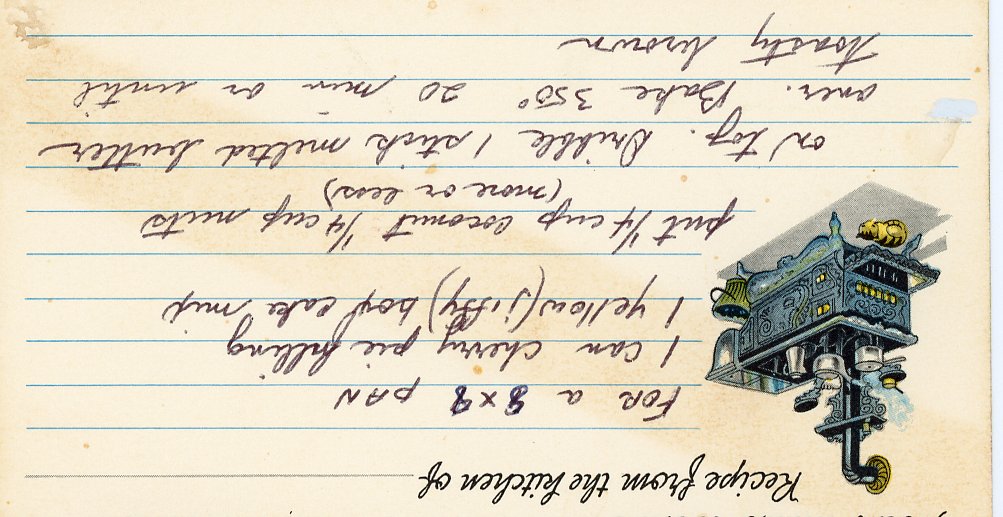 Recipe from the kitchen of
FOR a 8x8 PAN
1 can cherry pie filling
1 yellow (jiffy) box cake mix
put 1/4 cup coconut 1/4 cup nuts
(more or less)
on top. Dribble 1 stick melted butter
over. Bake 350° 20 min or until
toasty brown